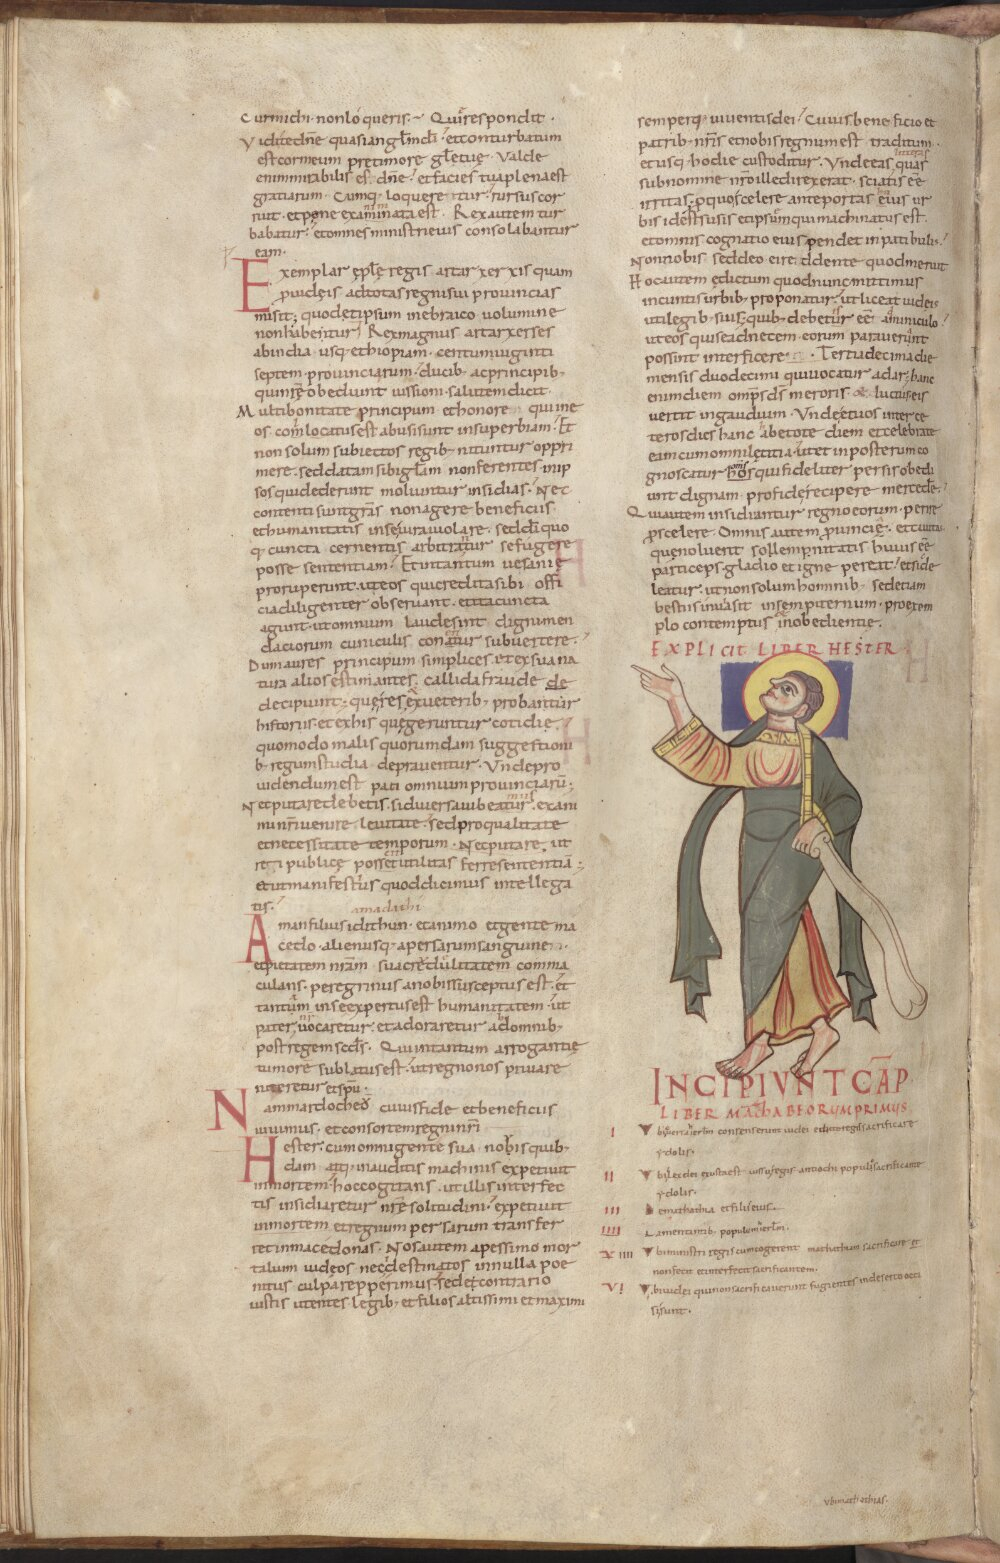 Cur michi non loqueris. Qui respondit.
Vidi te dñe quasi anglm di et conturbatum
est cor meum pre timore glę tuę. Valde
enim mirabilis es dñe et facies tua plena est
gratiarum. Cumq; loqueretur rursus cor
ruit et pene exanimata est. Rex autem tur
babatur et omnes ministri eius consolabantur
eam.
Exemplar ęplę regis artarxerxis quam
p iudeis ad totas regni sui provincias
misit, quod et ipsum in ebraico volumine
non habentur. Rex magnus artarxerses
ab india usq; ethiopiam centum viginti
septem provinciarum ducib; ac principib;
qui nrę obediunt iussioni salutem dicit.
Multi bonitate principum et honore qui in e
os conlocatus est abusi sunt in superbiam. Et
non solum subiectos regib; nituntur oppri
mere sed datam sibi glam non ferentes in ip
sos qui dederunt moliuntur insidias. Nec
contenti sunt gras non agere beneficiis
et humanitatis in se iura violare sed di quo
q; cuncta cernentis arbitrantur se fugere
posse sententiam. Et in tantum vesanię
proruperunt ut eos qui credita sibi offi
cia diligenter observant et ita cuncta
agunt ut omnium laude sint digni men
daciorum cuniculis conantur subvertere.
Dum aures principum simplices et ex sua na
tura alios estimantes callida fraude de
decipiunt quę res ex veterib; probantur
historiis et ex his quę geruntur cotidie
quomodo malis quorundam suggestioni
b; regum studia depraventur. Unde pro
videndum est paci omnium provinciarū;
Nec putare debetis si diversa iubeamus ex ani
mi nri venire levitate sed pro qualitate
et necessitate temporum. Nec putare ut
rei publicę poscit utilitas ferre sententiā;
et ut manifestius quod dicimus intellega
tis.
amadathi
Aman filius idithun et animo et gente ma
cedo alienusq; a persarum sanguine
et pietatem nram sua crudelitatem comma
culans peregrinus a nobis susceptus est et
tantam in se expertus est humanitatem ut
pater nr vocaretur et adoraretur ab omnib;
post regem scds. Qui in tantum arrogantię
tumore sublatus est ut regno nos privare
niteretur et spu.
Nam mardocheo cuius fide et beneficiis
vivimus et consortem regni nri
Hester cum omni gente sua nobis quib;
dam atq; inauditis machinis expetivit
in mortem hoc cogitans ut illis interfec
tis insidiaretur nrę solitudini expetivit
in mortem et regnum persarum transfer
ret in macedonas. Nos autem a pessimo mor
talium iudeos neci destinatos in nulla poe
nitus culpa repperimus sed e contrario
iustis utentes legib; et filios altissimi et maximi
semperq; viventis dei. Cuius beneficio et
patrib; nris et nobis regnum est traditum
et usq; hodie custoditur. Unde eas litteras quas
sub nomine nro ille direxerat sciatis eē
irritas p quo scelere ante portas huius ur
bis id est susis et ipse qui machinatus est
et omnis cognatio eius pendet in patibulis
Non nobis sed deo ei reddente quod meruit
Hoc autem edictum quod nunc mittimus
in cunctis urbib; proponatur ut liceat iudeis
uti legib; suis quib; debetur eē adminiculo
ut eos qui se ad necem eorum paraverunt
possint interficere. Tertia decima die
mensis duodecimi qui vocatur adar hanc
enim diem omps ds meroris et luctus eis
vertit in gaudium. Unde et vos inter ce
teros dies hanc habetote diem et celebrate
eam cum omni lętitia ut et in posterum co
gnoscatur omnes qui fideliter persis obedi
unt dignam pro fide recipere mercede.
Qui autem insidiantur regno eorum perire
p scelere. Omnis autem provincię et civitas
que noluerit sollempnitatis huius eē
particeps gladio et igne pereat et sic de
leatur ut non solum hominib; sed etiam
bestiis invia sit in sempiternum pro exem
plo contemptus et inobedientie.
EXPLICIT LIBER HESTER
INCIPIVNT CAP
LIBER MACHABEORVM PRIMVS
I Vbi verra ierlm consenserunt iudei edicto regis sacrificare
ydolis.
II Vbi lex dei exusta est iussu regis antiochi populus sacrificante
ydolis.
III De mathathia et filiis eius.
IIII Lamentantib; populum ierlm.
V IIII Vbi ministri regis cum cogerent mathathiam sacrificare et
non fecit et interfecit sacrificantem.
VI Vbi iudei qui non sacrificaverunt fugientes in deserto occi
si sunt.
Vbi mathathias.